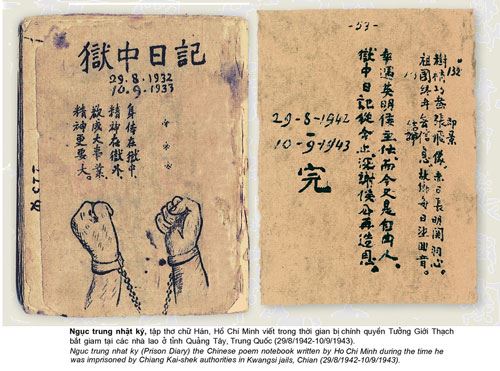 獄中日記
29.8.1932
10.9.1933
身体在獄中,
精神在獄外,
欲成大事業,
精神更要大。
-53-
132
即景
樹梢巧畫張飛像,赤日長明關羽心。
祖國終年無信息,故鄉每日望回音。
結論
幸遇英明侯主任,而今又是自由人。
獄中日記從今止,深謝侯公再造恩。
29-8-1942
10-9-1943
完
Ngục trung nhật ký, tập thơ chữ Hán, Hồ Chí Minh viết trong thời gian bị chính quyền Tưởng Giới Thạch
bắt giam tại các nhà lao ở tỉnh Quảng Tây, Trung Quốc (29/8/1942-10/9/1943).
Ngục trung nhat ky (Prison Diary) the Chinese poem notebook written by Ho Chi Minh during the time he
was imprisoned by Chiang Kai-shek authorities in Kwangsi jails, Chian (29/8/1942-10/9/1943)